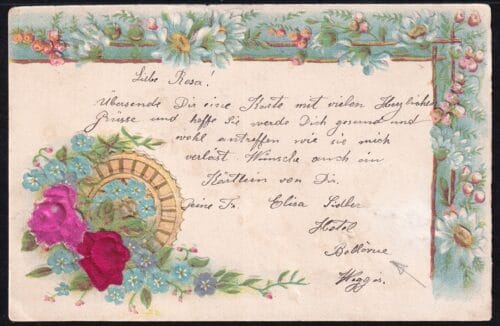 Liebe Rosa!
Übersende Dir eine Karte mit vielen Herzlichen
Grüsse und hoffe Sie werde Dich gesund und
wohl antreffen wie sie mich
verlast Wünsche auch ein
Kärtlein von Dir.
Deine Fr. Elisa Sidler
Hotel
Bellevue
Weggis.